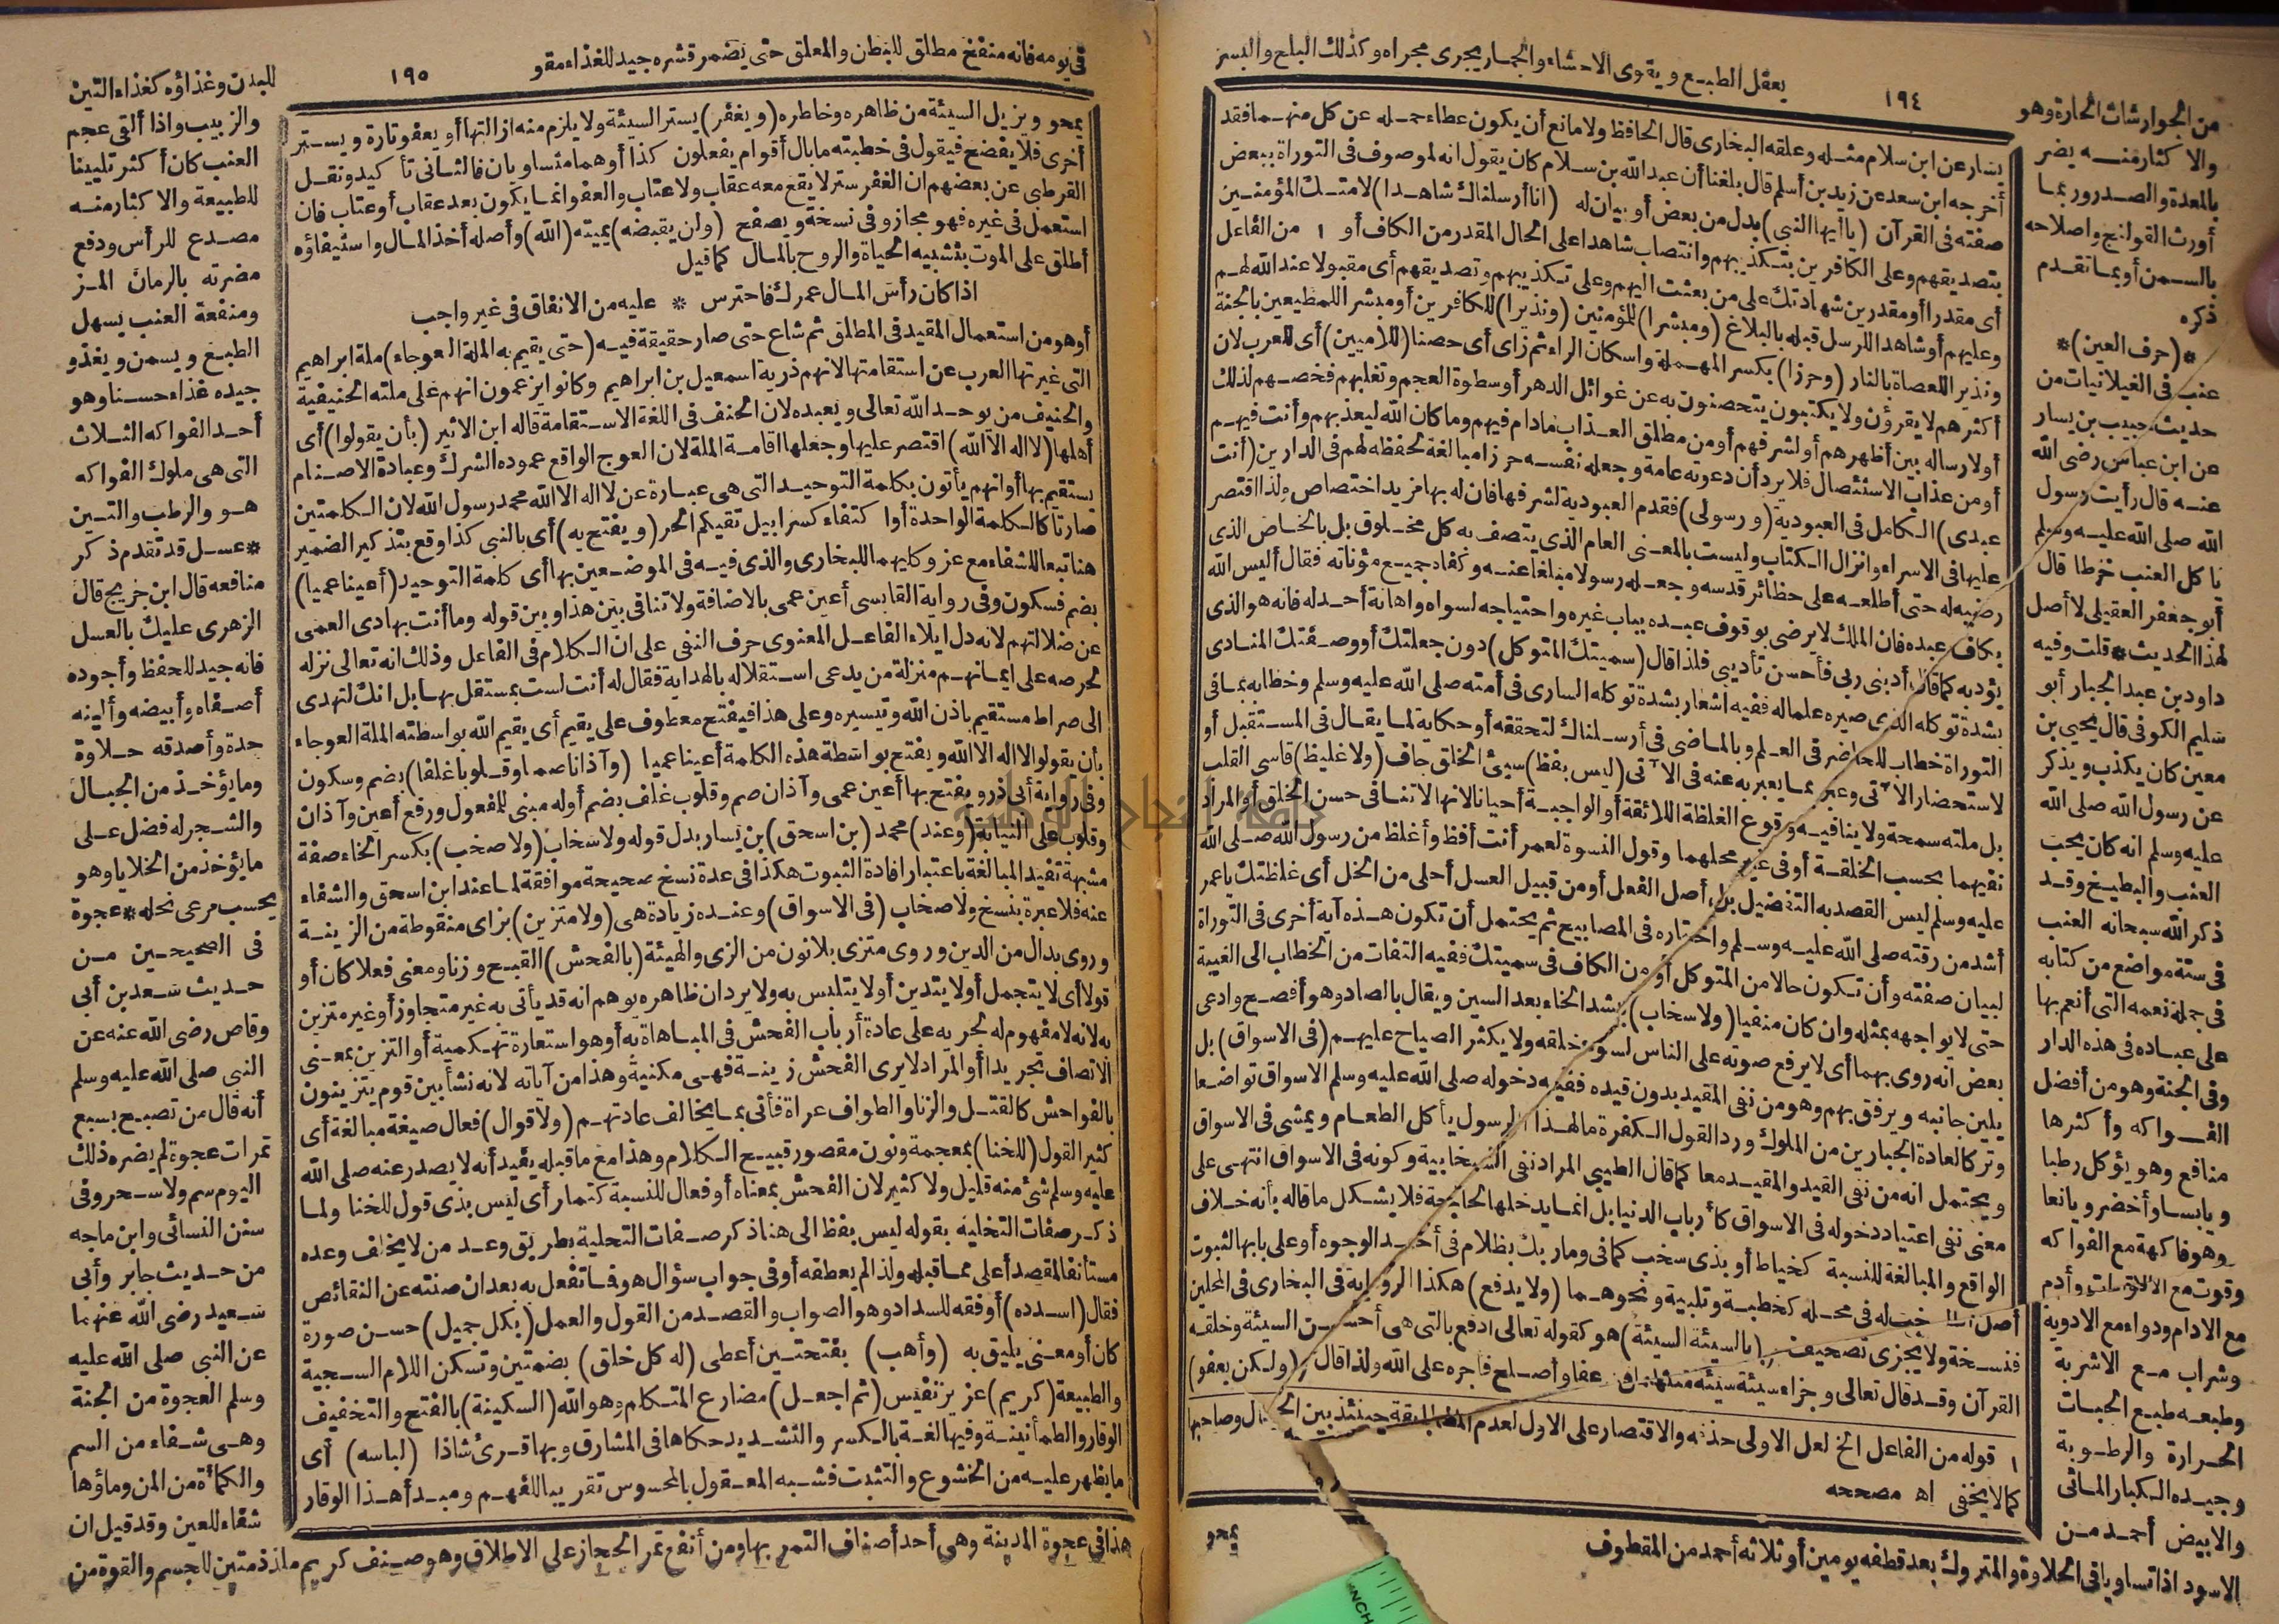 يعقل الطبيع ويقوى الاحشاء والجمار يجرى مجراه وكذلك البلح والبسر
١٩٤
يسار عن ابن سلام مثله وعلقه البخارى قال الحافظ ولا مانع أن يكون عطاء حمله عن كل منهما فقد
أخرجه ابن سعد عن زيد بن أسلم قال بلغنا أن عبد الله بن سلام كان يقول انه لموصوف فى التوراة ببعض
صفته فى القرآن (يا أيها النبى) بدل من بعض أو بيان له (انا أرسلناك شاهدا) لامتك المؤمنين
بتصديقهم وعلى الكافرين بتكذيبهم وانتصاب شاهدا على الحال المقدر من الكاف أو ١ من الفاعل
أى مقدرا أو مقدرين شهادتك على من بعثت اليهم وعلى تكذيبهم وتصديقهم أى مقبولا عند الله لهم
وعليهم أو شاهدا للرسل قبله بالبلاغ (ومبشرا) للمؤمنين (ونذيرا) للكافرين أو مبشرا للمطيعين بالجنة
ونذيرا للعصاة بالنار (وحرزا) بكسر المهملة واسكان الراء ثم زاى أى حصنا (للاميين) أى للعرب لان
أكثرهم لا يقرؤن ولا يكتبون يتحصنون به عن غوائل الدهر أو سطوة العجم وتغلبهم فخصهم لذلك
أو لارساله بين أظهرهم أو لشرفهم أو من مطلق العذاب مادام فيهم وما كان الله ليعذبهم وأنت فيهم
أو من عذاب الاستئصال فلا يرد أن دعوته عامة وجعله نفسه حرزا مبالغة لحفظه لهم فى الدارين (أنت
عبدى) الكامل فى العبودية (ورسولى) فقدم العبودية لشرفها فان له بها مزيد اختصاص ولذا اقتصر
عليها فى الاسراء وانزال الكتاب وليست بالمعنى العام الذى يتصف به كل مخلوق بل بالخاص الذى
رضيه له حتى أطلعه على حظائر قدسه وجعله رسولا مبلغا عنه وكفاه جميع مؤناته فقال أليس الله
بكاف عبده فان الملك لا يرضى بوقوف عبده بباب غيره واحتياجه لسواه واهانة أحد له فانه هو الذى
يؤدبه كما قال أدبنى ربى فأحسن تأديبى فلذا قال (سميتك المتوكل) دون جعلتك أو وصفتك المنادى
بشدة توكله الذى صيره علما له ففيه اشعار بشدة توكله السارى فى أمته صلى الله عليه وسلم وخطابه بما فى
التوراة خطاب للحاضر فى العلم وبالماضى فى أرسلناك لتحققه أو حكاية لما يقال فى المستقبل أو
لاستحضار الآتى وعبر بما يعبر به عنه فى الآتى (ليس بفظ) سيئ الخلق جاف (ولا غليظ) قاسى القلب
بل ملته سمحة ولا ينافيه وقوع الغلظة اللائقة أو الواجبة أحيانا لانها لا تنافى حسن الخلق أو المراد
نفيهما بحسب الخلقة أو فى غير محلهما وقول النسوة لعمر أنت أفظ وأغلظ من رسول الله صلى الله
عليه وسلم ليس القصد به التفضيل بل أصل الفعل أو من قبيل العسل أحلى من الخل أى غلظتك يا عمر
أشد من رقته صلى الله عليه وسلم واختاره فى المصابيح ثم يحتمل أن تكون هذه آية أخرى فى التوراة
لبيان صفته وأن تكون حالا من المتوكل أو من الكاف فى سميتك ففيه التفات من الخطاب الى الغيبة
حتى لا يواجهه بمثله وان كان منفيا (ولا سخاب) بشد الخاء بعد السين ويقال بالصاد وهو أفصح وادعى
بعض انه روى بهما أى لا يرفع صوته على الناس لسوء خلقه ولا يكثر الصياح عليهم (فى الاسواق) بل
يلين جانبه ويرفق بهم وهو من نفى المقيد بدون قيده ففيه دخوله صلى الله عليه وسلم الاسواق تواضعا
وتركا لعادة الجبارين من الملوك ورد القول الكفرة ما لهذا الرسول يأكل الطعام ويمشى فى الاسواق
ويحتمل انه من نفى القيد والمقيد معا كما قال الطيبى المراد نفى السخابية وكونه فى الاسواق انتهى على
معنى نفى اعتياد دخوله فى الاسواق كأرباب الدنيا بل انما يدخلها لحاجة فلا يشكل ما قاله بأنه خلاف
الواقع والمبالغة للنسبة كخياط أو بذى سخب كما فى وما ربك بظلام فى أحد الوجوه أو على بابها لثبوت
أصل السخب له فى محله كخطبة وتلبية ونحوهما (ولا يدفع) هكذا الرواية فى البخارى فى المحلين
فنسخة ولا يجزى تصحيف (بالسيئة السيئة) هو كقوله تعالى ادفع بالتى هى أحسن السيئة وخلقه
القرآن وقد قال تعالى وجزاء سيئة سيئة مثلها فمن عفا وأصلح فاجره على الله ولذا قال (ولكن يعفو)
١ قوله من الفاعل الخ لعل الاولى حذفه والاقتصار على الاول لعدم المطابقة حينئذ بين الحال وصاحبها
كما لا يخفى اه مصححه
يمحو
من الجوارشات الحارة وهو
والاكثار منه يضر
بالمعدة والصدر وربما
أورث القولنج واصلاحه
بالسمن أو بما تقدم
ذكره
*(حرف العين)*
عنب فى الغيلانيات من
حديث حبيب بن يسار
عن ابن عباس رضى الله
عنه قال رأيت رسول
الله صلى الله عليه وسلم
يأكل العنب خرطا قال
أبو جعفر العقيلى لا أصل
لهذا الحديث * قلت وفيه
داود بن عبد الجبار أبو
سليم الكوفى قال يحيى بن
معين كان يكذب ويذكر
عن رسول الله صلى الله
عليه وسلم انه كان يحب
العنب والبطيخ وقد
ذكر الله سبحانه العنب
فى ستة مواضع من كتابه
فى جملة نعمه التى أنعم بها
على عباده فى هذه الدار
وفى الجنة وهو من أفضل
الفواكه وأكثرها
منافع وهو يؤكل رطبا
ويابسا وأخضر ويانعا
وهو فاكهة مع الفواكه
وقوت مع الاقوات وأدم
مع الادام ودواء مع الادوية
وشراب مع الاشربة
وطبعه طبع الحبات
الحرارة والرطوبة
وجيده الكبار المائى
والابيض أحمد من
الاسود اذا تساويا فى الحلاوة والمتروك بعد قطفه يومين أو ثلاثة أحمد من المقطوف
فى يومه فانه منفخ مطلق للبطن والمعلق حتى يضمر قشره جيد للغذاء مقو
١٩٥
يمحو ويزيل السيئة من ظاهره وخاطره (ويغفر) يستر السيئة ولا يلزم منه ازالتها أو يعفو تارة ويستر
أخرى فلا يفضح فيقول فى خطبته ما بال أقوام يفعلون كذا أو هما متساويان فالثانى تأكيد ونقل
القرطبى عن بعضهم ان الغفر ستر لا يقع معه عقاب ولا عتاب والعفو انما يكون بعد عقاب أو عتاب فان
استعمل فى غيره فهو مجاز وفى نسخة ويصفح (ولن يقبضه) يميته (الله) وأصله أخذ المال واستيفاؤه
أطلق على الموت بتشبيه الحياة والروح بالمال كما قيل
اذا كان رأس المال عمرك فاحترس * عليه من الانفاق فى غير واجب
أو هو من استعمال المقيد فى المطلق ثم شاع حتى صار حقيقة فيه (حتى يقيم به الملة العوجاء) ملة ابراهيم
التى غيرتها العرب عن استقامتها لانهم ذرية اسمعيل بن ابراهيم وكانوا يزعمون انهم على ملته الحنيفية
والحنيف من يوحد الله تعالى ويعبده لان الحنف فى اللغة الاستقامة قاله ابن الاثير (بأن يقولوا) أى
أهلها (لا اله الا الله) اقتصر عليها وجعلها اقامة الملة لان العوج الواقع عموده الشرك وعبادة الاصنام
يستقيم بها أو انهم يأتون بكلمة التوحيد التى هى عبارة عن لا اله الا الله محمد رسول الله لان الكلمتين
صارتا كالكلمة الواحدة أو اكتفاء كسرابيل تقيكم الحر (ويفتح به) أى بالنبى كذا وقع بتذكير الضمير
هنا تبعا للشفاء مع عزوكليهما للبخارى والذى فيه فى الموضعين بها أى كلمة التوحيد (أعينا عميا)
بضم فسكون وفى رواية القابسى أعين عمى بالاضافة ولا تنافى بين هذا وبين قوله وما أنت بهادى العمى
عن ضلالتهم لانه دل ايلاء الفاعل المعنوى حرف النفى على ان الكلام فى الفاعل وذلك انه تعالى نزله
لحرصه على ايمانهم منزلة من يدعى استقلاله بالهداية فقال له أنت لست بمستقل بها بل انك لتهدى
الى صراط مستقيم باذن الله وتيسيره وعلى هذا فيفتح معطوف على يقيم أى يقيم الله بواسطته الملة العوجاء
بأن يقولوا لا اله الا الله ويفتح بواسطة هذه الكلمة أعينا عميا (وآذانا صما وقلوبا غلفا) بضم وسكون
وفى رواية أبى ذر ويفتح بها أعين عمى وآذان صم وقلوب غلف بضم أوله مبنى للمفعول ورفع أعين وآذان
وقلوب على النيابة (وعند) محمد (بن اسحق) بن يسار بدل قوله ولا سخاب (ولا صخب) بكسر الخاء صفة
مشبهة تفيد المبالغة باعتبار افادة الثبوت هكذا فى عدة نسخ صحيحة موافقة لما عند ابن اسحق والشفاء
عنه فلا عبرة بنسخ ولا صخاب (فى الاسواق) وعنده زيادة هى (ولا متزين) بزاى منقوطة من الزينة
وروى بدال من الدين وروى متزى بلا نون من الزى والهيئة (بالفحش) القبيح وزنا ومعنى فعلا كان أو
قولا أى لا يتجمل أو لا يتدين أو لا يتلبس به ولا يرد ان ظاهره يوهم انه قد يأتى به غير متجاوز أو غير متزين
به لانه لا مفهوم له لجريه على عادة أرباب الفحش فى المباهاة به أو هو استعارة تهكمية أو التزين بمعنى
الاتصاف تجريدا أو المراد لا يرى الفحش زينة فهى مكنية وهذا من آياته لانه نشأ بين قوم يتزينون
بالفواحش كالقتل والزنا والطواف عراة فأتى بما يخالف عادتهم (ولا قوال) فعال صيغة مبالغة أى
كثير القول (للخنا) بمعجمة ونون مقصور قبيح الكلام وهذا مع ما قبله يفيد أنه لا يصدر عنه صلى الله
عليه وسلم شئ منه قليل ولا كثير لان الفحش بمعناه أو فعال للنسبة كتمار أى ليس بذى قول للخنا ولما
ذكر صفات التخلية بقوله ليس بفظ الى هنا ذكر صفات التحلية بطريق وعد من لا يخلف وعده
مستأنفا لمقصد أعلى مما قبله ولذا لم يعطفه أو فى جواب سؤال هو فما تفعل به بعد ان صنته عن النقائص
فقال (أسدده) أوفقه للسداد وهو الصواب والقصد من القول والعمل (بكل جميل) حسن صورة
كان أو معنى يليق به (وأهب) بفتحتين أعطى (له كل خلق) بضمتين وتسكن اللام السجية
والطبيعة (كريم) عزيز نفيس (ثم اجعل) مضارع المتكلم وهو الله (السكينة) بالفتح والتخفيف
الوقار والطمأنينة وفيها لغة بالكسر والتشديد حكاها فى المشارق وبها قرئ شاذا (لباسه) أى
ما يظهر عليه من الخشوع والتثبت فشبه المعقول بالمحسوس تقريبا للفهم ومبدأ هذا الوقار
للبدن وغذاؤه كغذاء التين
والزبيب واذا ألقى عجم
العنب كان أكثر تليينا
للطبيعة والاكثار منه
مصدع للرأس ودفع
مضرته بالرمان المز
ومنفعة العنب يسهل
الطبع ويسمن ويغذو
جيده غذاء حسنا وهو
أحد الفواكه الثلاث
التى هى ملوك الفواكه
هو والرطب والتين
* عسل قد تقدم ذكر
منافعه قال ابن جريج قال
الزهرى عليك بالعسل
فانه جيد للحفظ وأجوده
أصفاه وأبيضه وألينه
حدة وأصدقه حلاوة
وما يؤخذ من الجبال
والشجر له فضل على
ما يؤخذ من الخلايا وهو
بحسب مرعى نحله * عجوة
فى الصحيحين من
حديث سعد بن أبى
وقاص رضى الله عنه عن
النبى صلى الله عليه وسلم
أنه قال من تصبح بسبع
تمرات عجوة لم يضره ذلك
اليوم سم ولا سحر وفى
سنن النسائى وابن ماجه
من حديث جابر وأبى
سعيد رضى الله عنهما
عن النبى صلى الله عليه
وسلم العجوة من الجنة
وهى شفاء من السم
والكمأة من المن وماؤها
شفاء للعين وقد قيل ان
هذا فى عجوة المدينة وهى أحد أصناف التمر بها ومن أنفع تمر الحجاز على الاطلاق وهو صنف كريم ملذذ متين للجسم والقوة من